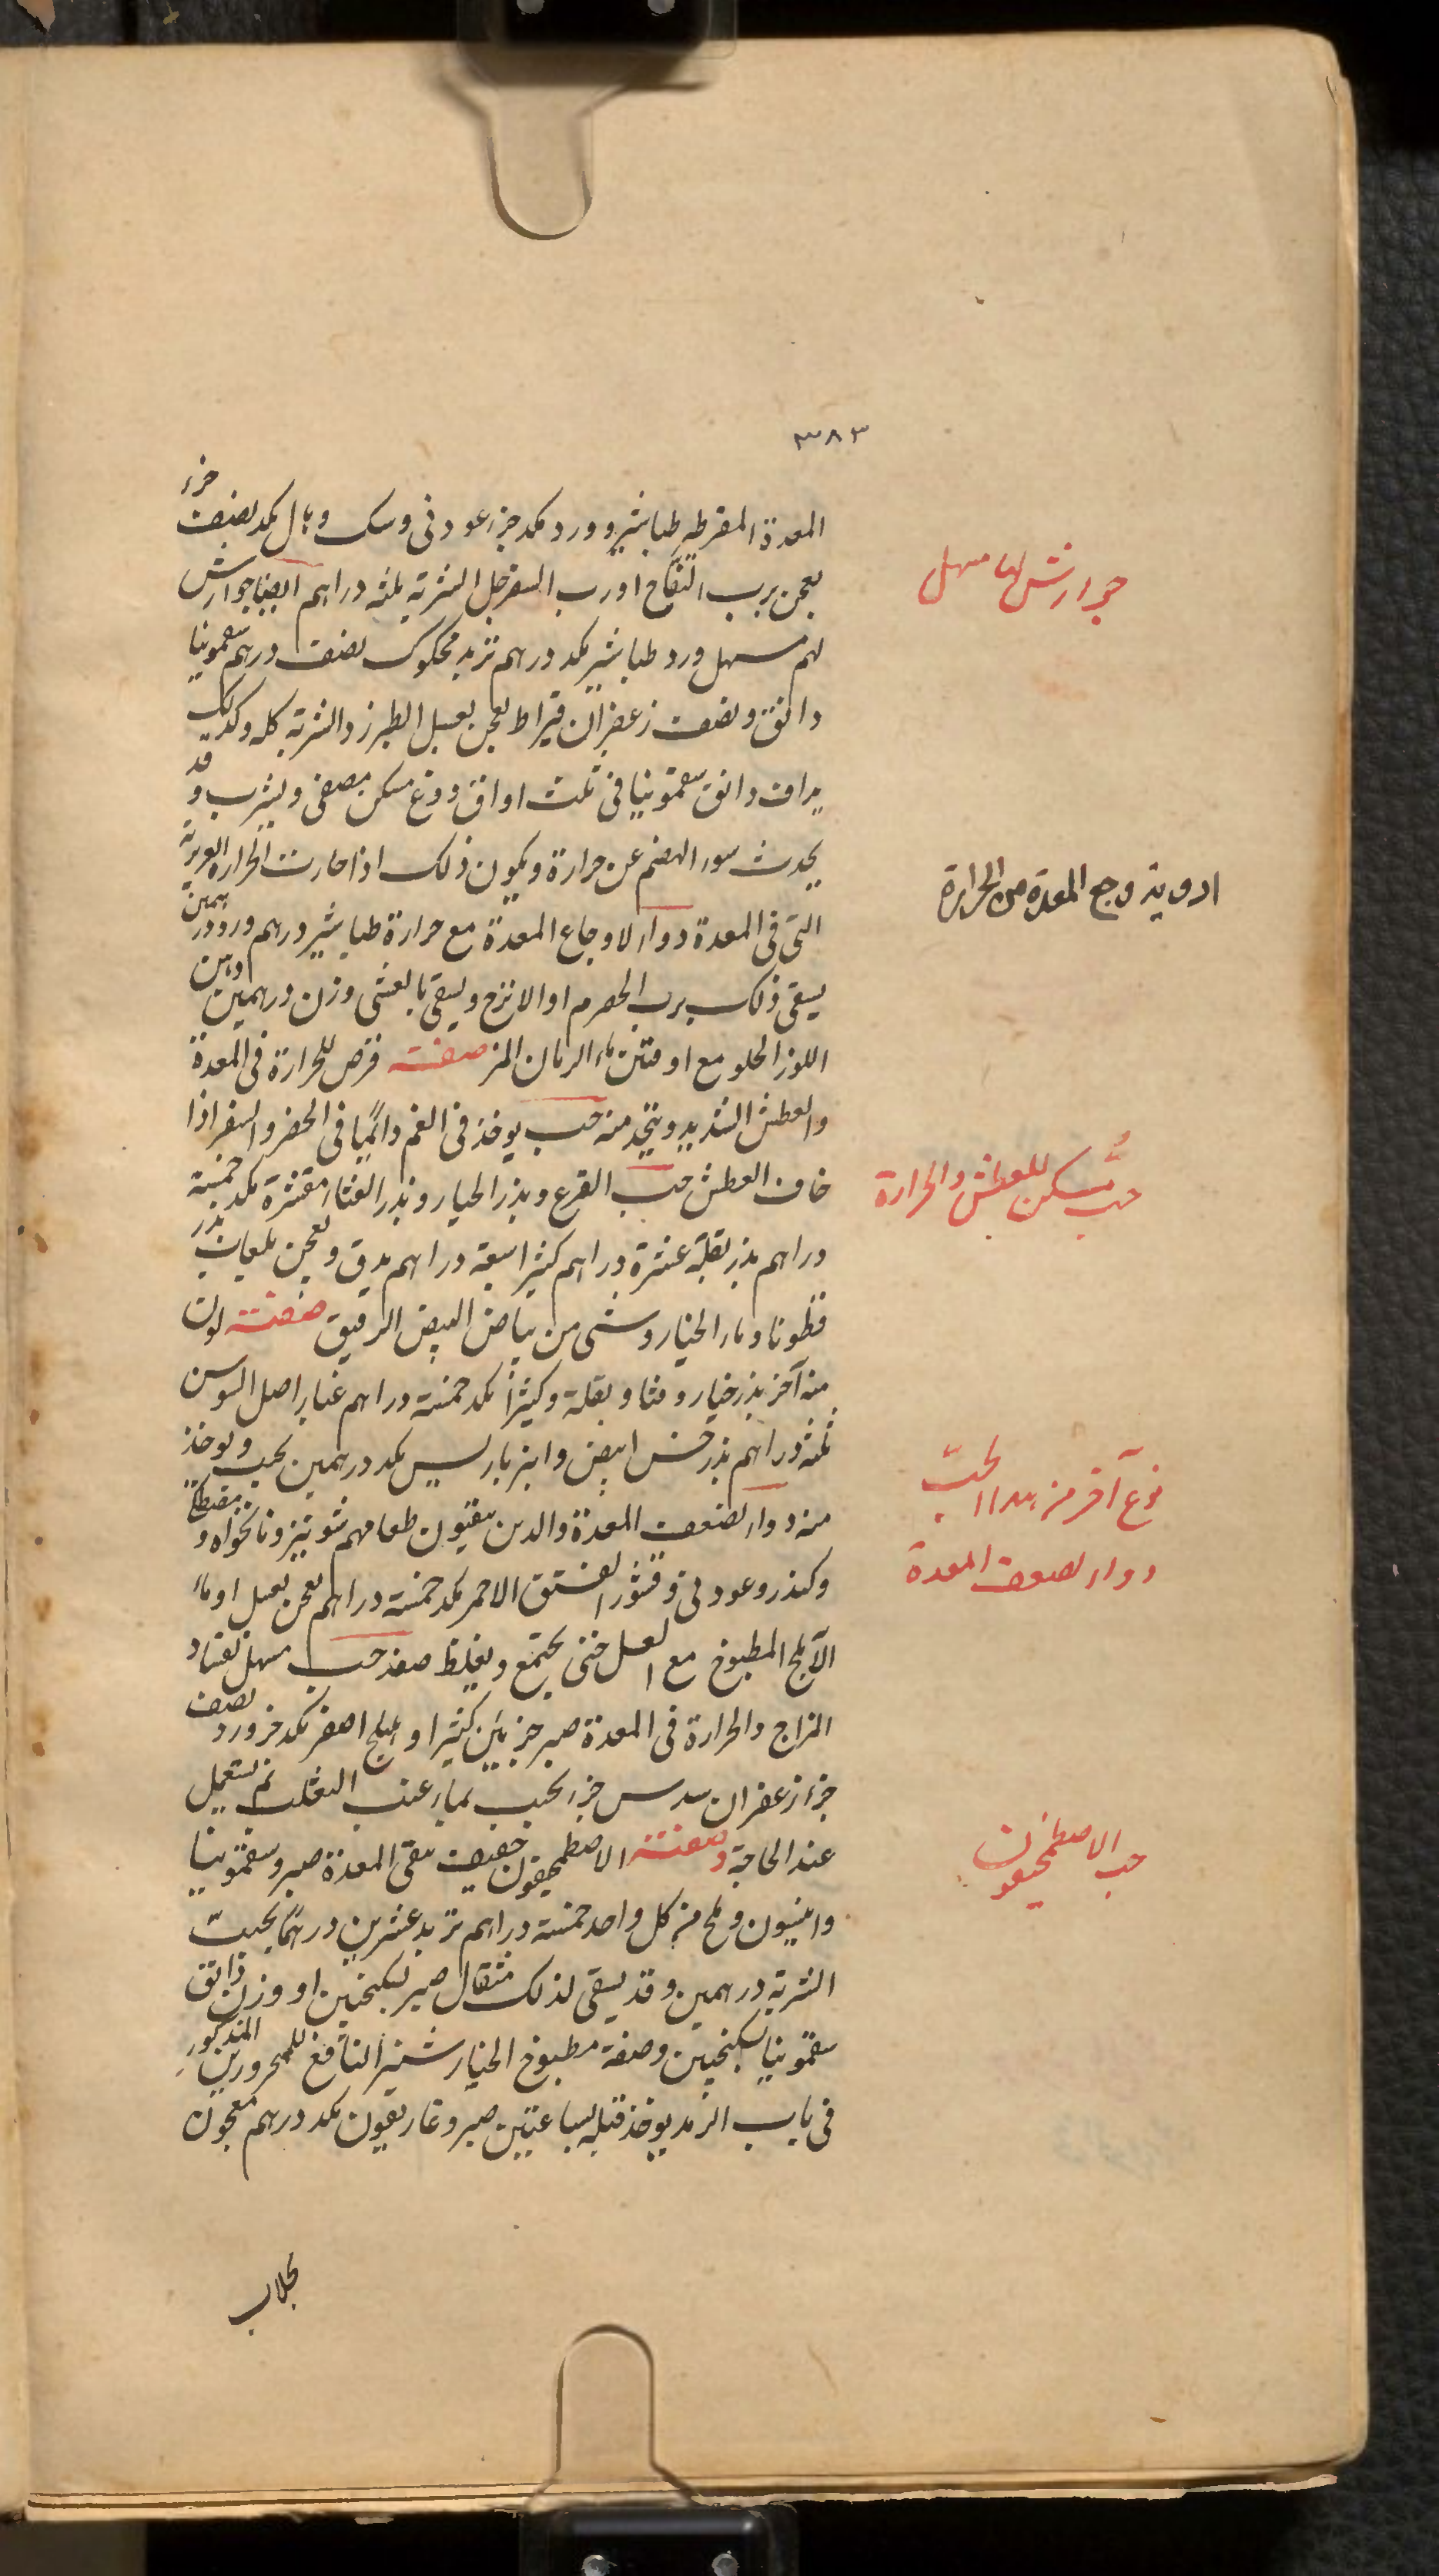 ٣٨٣
المعدة المفرطه طباشير وورد مكد جزء عود نى وسك وبال مكد نصف جزء
يعجن برب التفاح او رب السفرجل الشربة ثلثه دراهم ايضا جوارش
لهم مسهل ورد طباشير مكد درهم تربد محكوك نصف درهم سقمونيا
دانق ونصف زعفران قيراط يعجن بعسل الطبرزد الشربة كله وكذلك
يداف دانق سقمونيا فى ثلث اواق دوغ مسكن مصفى ويشرب وقد
يحدث سوء الهضم عن حرارة ويكون ذلك اذا حارت الحرارة الغريزية
التى فى المعدة دواء لاوجاع المعدة مع حرارة طباشير درهم ورد درهمين
يسقى ذلك برب الحصرم او الاترج ويسقى بالعشى وزن درهمين دهن
اللوز الحلو مع اوقتين ماء الرمان المز صفة قرص للحرارة فى المعدة
والعطش الشديد ويتخذ منه حب يوخذ فى الفم دائمًا فى الحضر والسفر اذا
خاف العطش حب القرع وبذر الخيار وبذر القثاء مقشرة مكد خمسة
دراهم بذر بقلة عشرة دراهم كثيرا سبعة دراهم يدق ويعجن بلعاب بذر
قطونا وماء الخيار وشى من بياض البيض الرقيق صفة لون
منه آخر بذر خيار وقثا وبقلة وكثيرا مكد خمسة دراهم غبار اصل السوس
ثلثة دراهم بذر خس ابيض وانبرباريس مكد درهمين يحبب ويوخذ
منه دواء لضعف المعدة والذين يتقيون طعامهم شونيز ونانخواه ومصطكى
وكندر وعود نى وقشور الفستق الاحمر مكد خمسة دراهم يعجن بعسل او ماء
الآملج المطبوخ مع العسل حتى يجتمع ويغلظ صفة حب مسهل لفساد
المزاج والحرارة فى المعدة صبر جزئين كثيرا وهليلج اصفر مكد جزء ورد نصف
جزء زعفران سدس جزء يحبب بماء عنب الثعلب ثم يستعمل
عند الحاجة وصفة الاصطمحيقون خفيف ينقى المعدة صبر وسقمونيا
وانيسون وملح من كل واحد خمسة دراهم تربد عشرين درهمًا يحبّب
الشربة درهمين وقد يسقى لذلك مثقال صبر بسكنجبين او وزن دانق
سقمونيا بسكنجبين وصفة مطبوخ الخيارشنبر النافع للمحرورين المذكور
فى باب الرمد يوخذ قبله بساعتين صبر وغاريقون مكد درهم معجون
بجلاب
جوارش لها مسهل
ادوية وجع المعدة من الحرارة
حبّ مسكن للعطش والحرارة
نوع آخر من هذا الحبّ
دواء لضعف المعدة
حب الاصطمحيقون